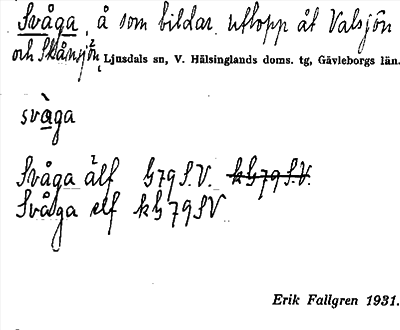 Svåga, å som bildar utlopp åt Valsjön
och Skånsjön, Ljusdals sn, V. Hälsinglands doms. tg, Gävleborgs län.
svåga
Svåga älf G79 S.V. kG79 S.V.
Svåga elf kG79SV
Erik Fallgren 1931.